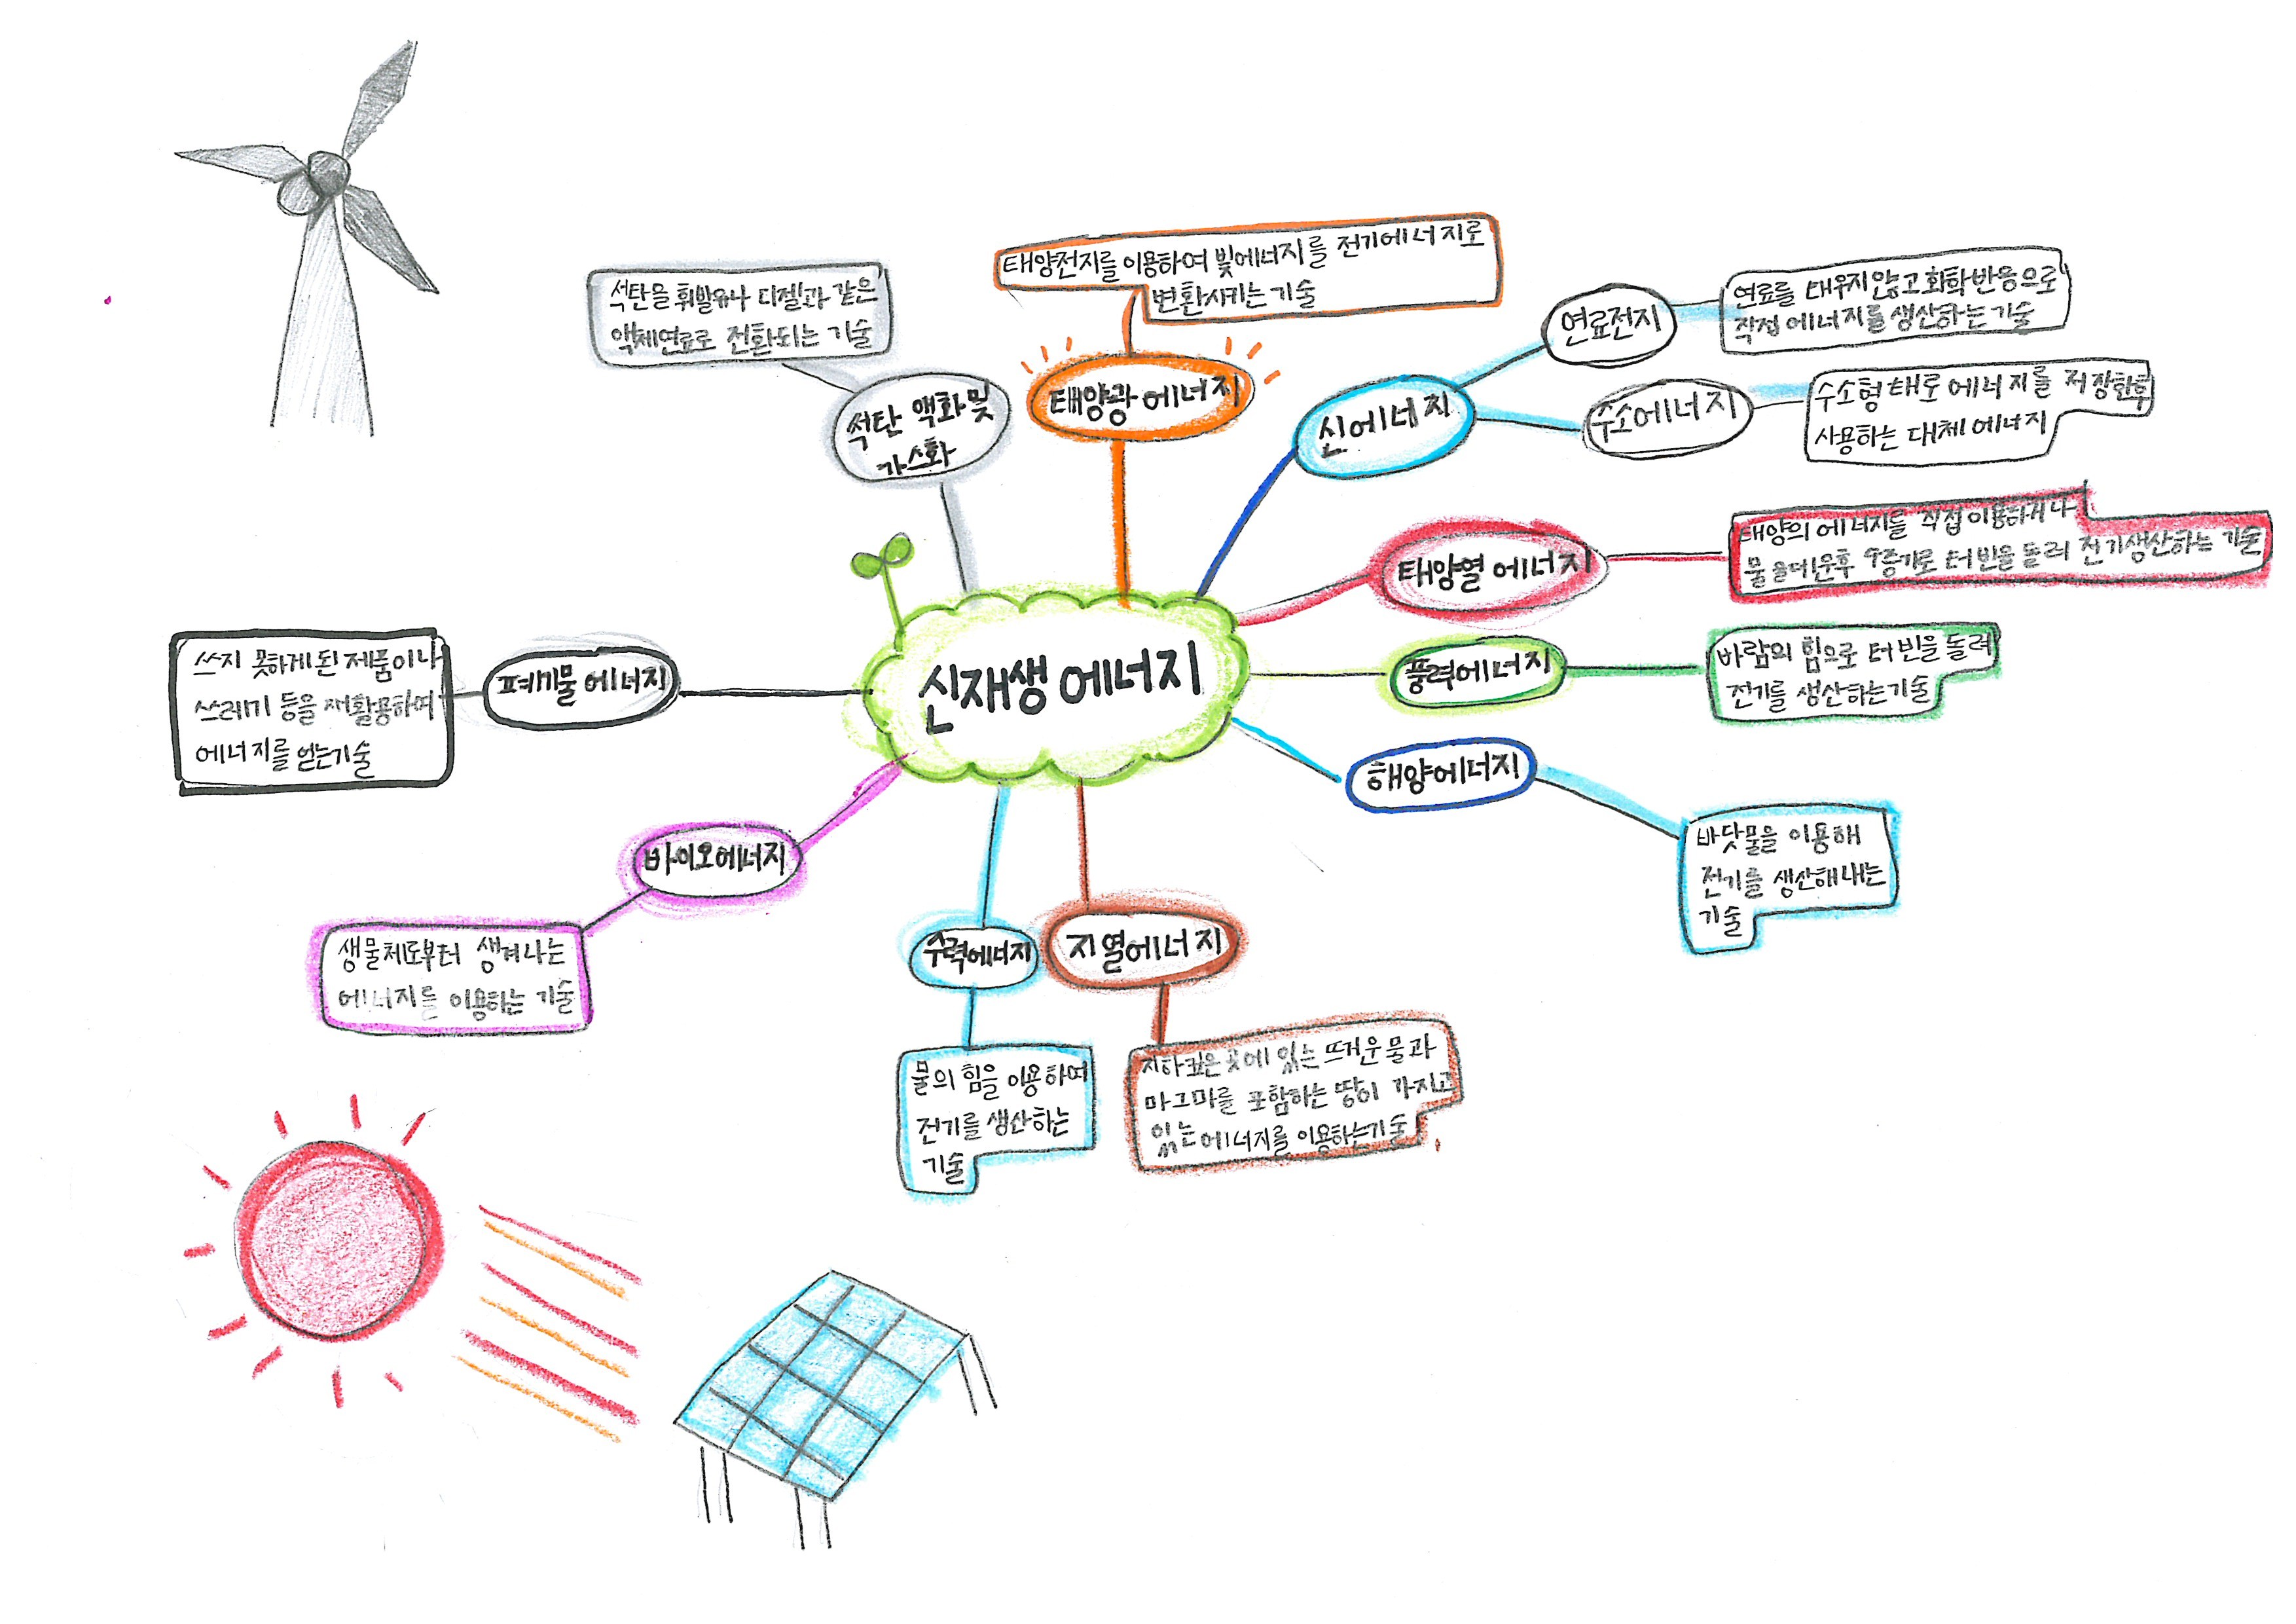 신재생 에너지
석탄 액화 및
가스화
석탄을 휘발유나 디젤과 같은
액체연료로 전환되는 기술
태양광 에너지
태양전지를 이용하여 빛에너지를 전기에너지로
변환시키는 기술
신에너지
연료전지
연료를 태우지않고 화학반응으로
직접 에너지를 생산하는 기술
수소에너지
수소형태로 에너지를 저장한후
사용하는 대체 에너지
태양열 에너지
태양의 에너지를 직접 이용하거나
물을 데운후 증기로 터빈을 돌려 전기생산하는 기술
풍력에너지
바람의 힘으로 터빈을 돌려
전기를 생산하는기술
해양에너지
바닷물을 이용해
전기를 생산해내는
기술
지열에너지
지하깊은 곳에 있는 뜨거운 물과
마그마를 포함하는 땅이 가지고
있는 에너지를 이용하는기술
수력에너지
물의 힘을 이용하여
전기를 생산하는
기술
바이오에너지
생물체로부터 생겨나는
에너지를 이용하는 기술
폐기물 에너지
쓰지 못하게된 제품이나
쓰레기 등을 재활용하여
에너지를 얻는기술